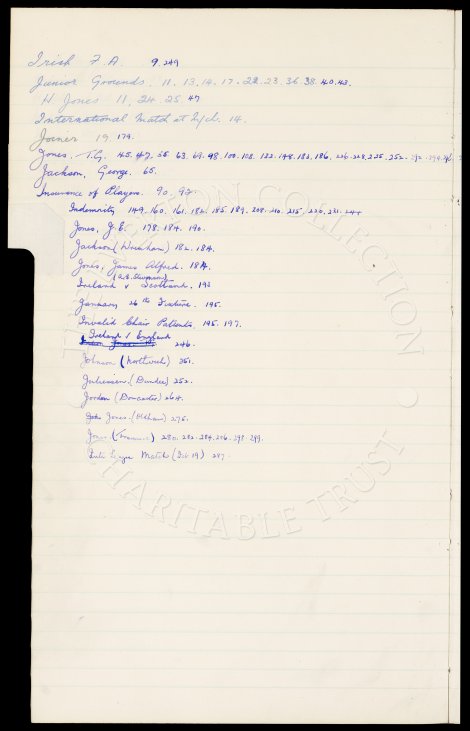 Irish F.A. 9. 249
Junior Grounds. 11. 13. 14. 17. 22. 23. 36. 38. 40. 43.
H. Jones 11. 24. 25. 47
International Match at L/cl. 14.
Joiner 19. 174.
Jones, T.G. 45. 47. 55. 63. 69. 98. 100. 108. 122. 148. 182. 186.
Jackson, George. 65.
Insurance of Players. 90. 92.
Indemnity 149. 160. 161. 182. 185. 189. 208. 210. 215.
Jones, J.E. 178. 184. 190.
Jackson (Wrexham) 182. 184.
Jones, James Alfred. 184.
Ireland v Scotland. 193
January 26th Fixture. 195.
Invalid Chair Patients. 195. 197.
Ireland / England
246.
Johnson (Northwich) 251.
Juliussen (Dundee) 252.
Jordan (Doncaster) 264.
Jones (Oldham) 275.
Jones 280. 282. 284. 298. 299.
Inter League Match (Oct 19) 287.
COLLECTION
CHARITABLE TRUST